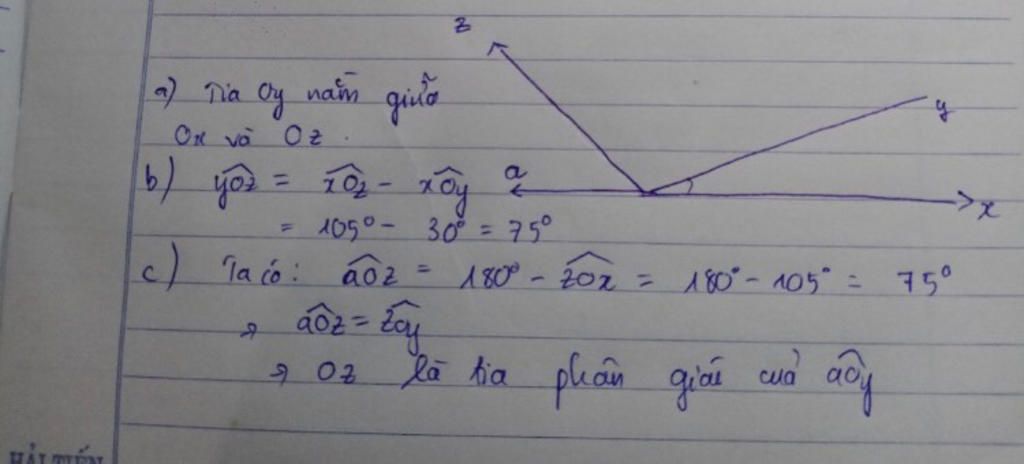 z
a) Tia Oy nằm giữa
y
Ox và Oz.
a
x
b) yÔz = xÔz - xÔy
= 105° - 30° = 75°
c) Ta có: aÔz = 180° - zÔx = 180° - 105° = 75°
⇒ aÔz = zÔy
⇒ Oz là tia phân giác của aÔy
HẢI TIẾN